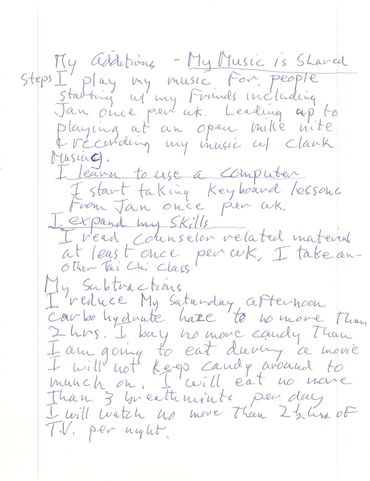 My Additions - My Music is Shared
Steps I play my music for people
starting w/ my friends including
Jan once per wk. Leading up to
playing at an open mike nite
& recording my music w/ Clark
Musing.
I learn to use a computer
I start taking keyboard lessons
from Jan once per wk.
I expand my skills
I read counselor related material
at least once per wk, I take an-
other Tai Chi class
My Subtractions
I reduce my Saturday afternoon
carbohydrate haze to no more than
2 hrs. I buy no more candy than
I am going to eat during a movie
I will not keep candy around to
munch on. I will eat no more
than 3 breathmints per day
I will watch no more than 2 ½ hrs of
T.V. per night.